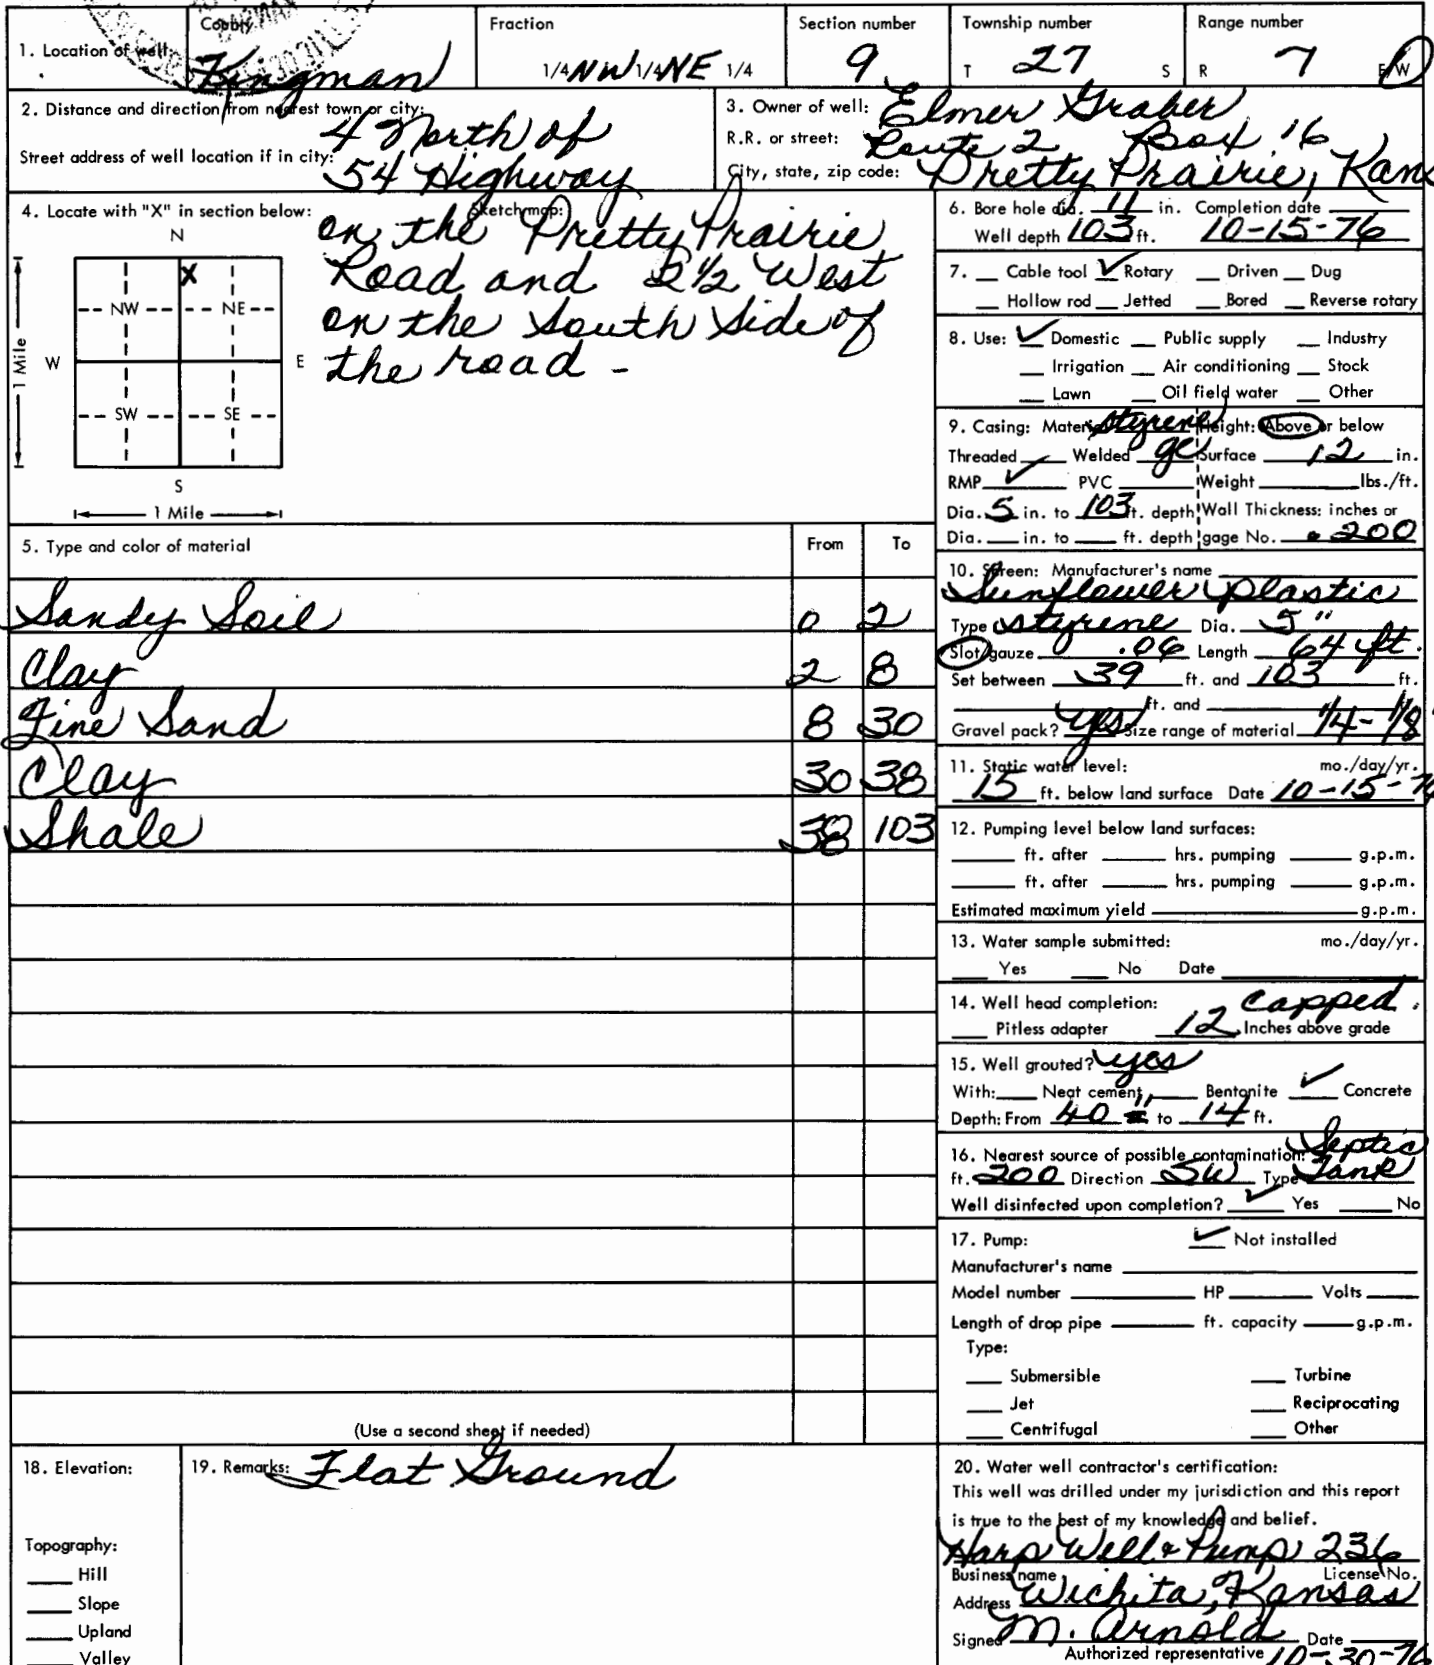 County Fraction Section number Township number Range number
1. Location of well: Kingman 1/4 NW 1/4 NE 1/4 9 T 27 S R 7 E/W
2. Distance and direction from nearest town or city: 4 North of
Street address of well location if in city: 54 Highway
3. Owner of well: Elmer Graber
R.R. or street: Route 2 Box 16
City, state, zip code: Pretty Prairie, Kans
4. Locate with "X" in section below: Sketch map:
on the Pretty Prairie
Road and 2 1/2 West
on the South Side of
the road -
N
X
NW NE
W E
SW SE
S
1 Mile
1 Mile
5. Type and color of material From To
Sandy Soil 0 2
Clay 2 8
Fine Sand 8 30
Clay 30 38
Shale 38 103
(Use a second sheet if needed)
6. Bore hole dia. 11 in. Completion date
Well depth 103 ft. 10-15-76
7. Cable tool ✓ Rotary Driven Dug
Hollow rod Jetted Bored Reverse rotary
8. Use: ✓ Domestic Public supply Industry
Irrigation Air conditioning Stock
Lawn Oil field water Other
9. Casing: Material styrene Height: Above or below
Threaded Welded Surface 12 in.
RMP ✓ PVC Weight lbs./ft.
Dia. 5 in. to 103 ft. depth Wall Thickness: inches or
Dia. in. to ft. depth gage No. .200
10. Screen: Manufacturer's name
Sunflower Plastic
Type styrene Dia. 5"
Slot/gauze .06 Length 64 ft.
Set between 39 ft. and 103 ft.
ft. and
Gravel pack? yes Size range of material 1/4 - 1/8"
11. Static water level: mo./day/yr.
15 ft. below land surface Date 10-15-76
12. Pumping level below land surfaces:
ft. after hrs. pumping g.p.m.
ft. after hrs. pumping g.p.m.
Estimated maximum yield g.p.m.
13. Water sample submitted: mo./day/yr.
Yes No Date
14. Well head completion: capped.
Pitless adapter 12 Inches above grade
15. Well grouted? yes
With: Neat cement Bentonite ✓ Concrete
Depth: From 40" to 14 ft.
16. Nearest source of possible contamination: Septic
ft. 200 Direction SW Type Tank
Well disinfected upon completion? ✓ Yes No
17. Pump: ✓ Not installed
Manufacturer's name
Model number HP Volts
Length of drop pipe ft. capacity g.p.m.
Type:
Submersible Turbine
Jet Reciprocating
Centrifugal Other
18. Elevation:
Topography:
Hill
Slope
Upland
Valley
19. Remarks: Flat Ground
20. Water well contractor's certification:
This well was drilled under my jurisdiction and this report
is true to the best of my knowledge and belief.
Harp Well & Pump 236
Business name License No.
Address Wichita, Kansas
Signed M. Arnold Date
Authorized representative 10-30-76